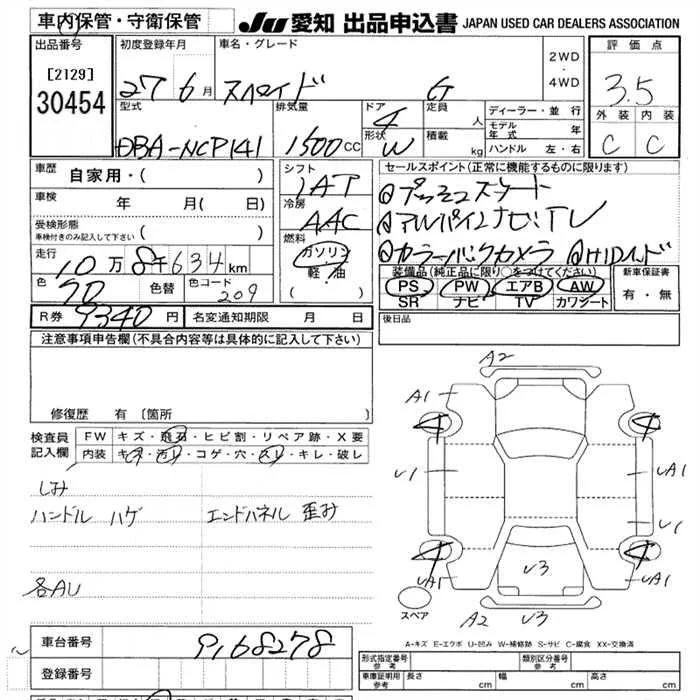 車内保管・守衛保管 JU 愛知 出品申込書 JAPAN USED CAR DEALERS ASSOCIATION
出品番号 初度登録年月 車名・グレード 2WD・4WD 評価点
[2129] 30454 27 6月 スペイド G 3.5
型式 排気量 ドア 4 定員 人 ディーラー・並行 外装 内装
形状 W 積載 kg モデル年式 年
DBA-NCP141 1500CC ハンドル 左・右 C C
車歴 自家用・( ) シフト 1AT セールスポイント(正常に機能するものに限ります)
車検 年 月( 日) 冷房 AAC @プッシュスタート
受検形態 車検付きのみ記入して下さい @アルパインナビ・TV
走行 10万8千634km 燃料 ガソリン 軽・油 @カラーバックカメラ @HID
色 70 色替 色コード 209 ( ) 装備品(純正品に限り○をつけてください) 新車保証書
PS PW エアB AW 有・無
SR ナビ TV カワシート
R券 9340円 名変通知期限 月 日 後日品
注意事項申告欄(不具合内容等は具体的に記入して下さい)
修復歴 有 〔箇所
検査員記入欄 FW キズ・飛石・ヒビ割・リペア跡・X要
内装 キズ・汚レ・コゲ・穴・スレ・キレ・破レ
しみ
ハンドル ハゲ エンドパネル 歪み
各AU
A2
A1
U1 UA1
U1
UA1 U3 UA1
スペア A2 U3
A-キズ E-エクボ U-凹み W-補修跡 S-サビ C-腐食 XX-交換済
車台番号 9168278
登録番号
形式指定番号 参考 類別区分番号 参考
車庫証明用 参考 長さ cm 幅 cm 高さ cm